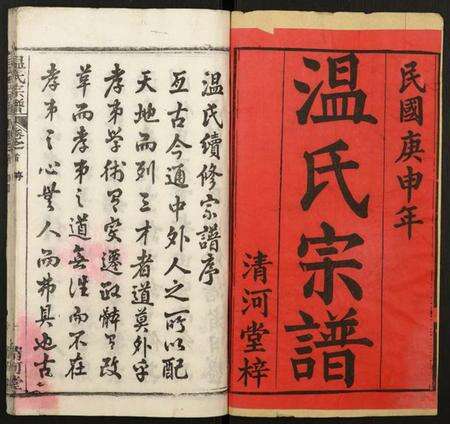 民國庚申年
温氏宗譜
清河堂梓
温氏續修宗譜序
亙古今通中外人之所以配
天地而列三才者道莫外乎
孝弟學術有變遷政體有改
革而孝弟之道無往而不在
孝弟之心無人而弗具也古
温氏宗譜
卷之首
序
清河堂